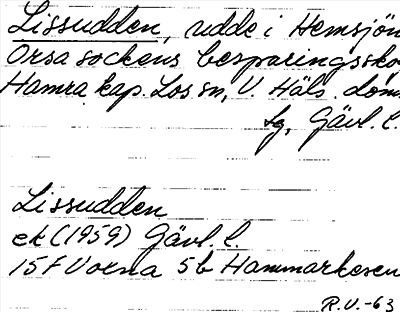 Lissudden, udde i Hemsjön
Orsa sockens besparingssko
Hamra kap. Los sn, V. Häls. doms
sg, Gävl. l.
Lissudden
ek (1959) Gävl. l.
15F Voxna 5b Hammarkesen
R.V.-63